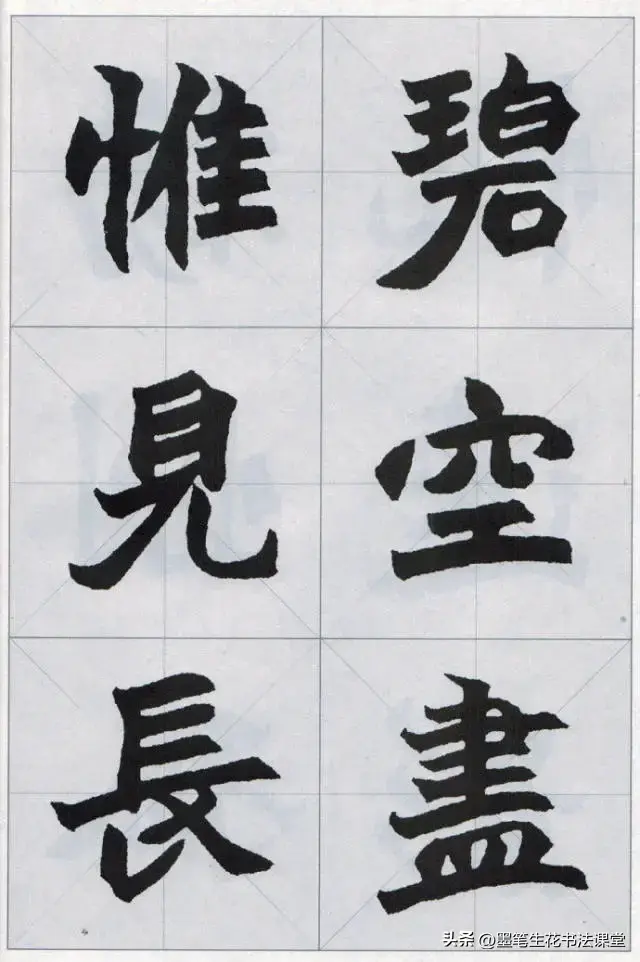 碧空盡
惟見長
头条 @墨笔生花书法课堂